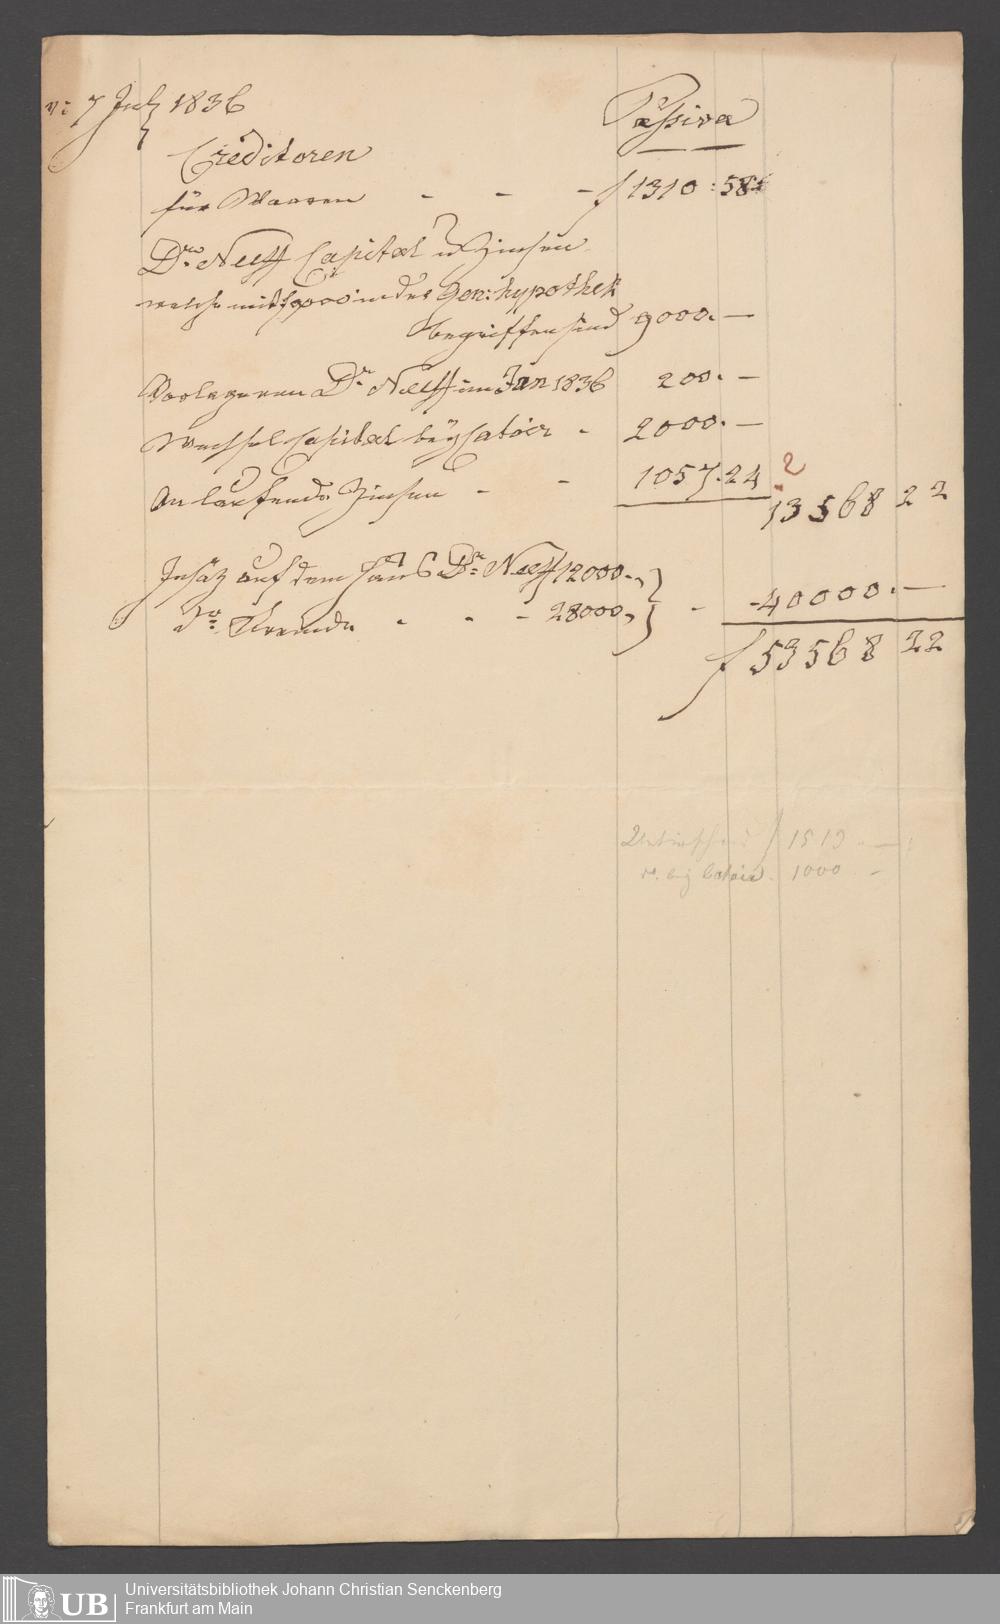 7 July 1836
Passiva
Creditoren
für Waaren - - - f 1310 : 58
Dr. Neeff Capital u Zinsen
welche mit f 9000 in der Gen: hypothek
begriffen sind 9000. —
Vorlage von Dr. Neeff im Jan 1836 200. —
Wechsel Capital bey Catoir - 2000. —
An laufende Zinsen - - 1057. 24
2
13568 22
Insäz auf dem Haus Dr. Neeff 12000. —
do. Fremde - - - 28000 - 40000. —
f 53568 22
f 1519 —
do. bey Catoir. 1000 —
UB
Universitätsbibliothek Johann Christian Senckenberg
Frankfurt am Main